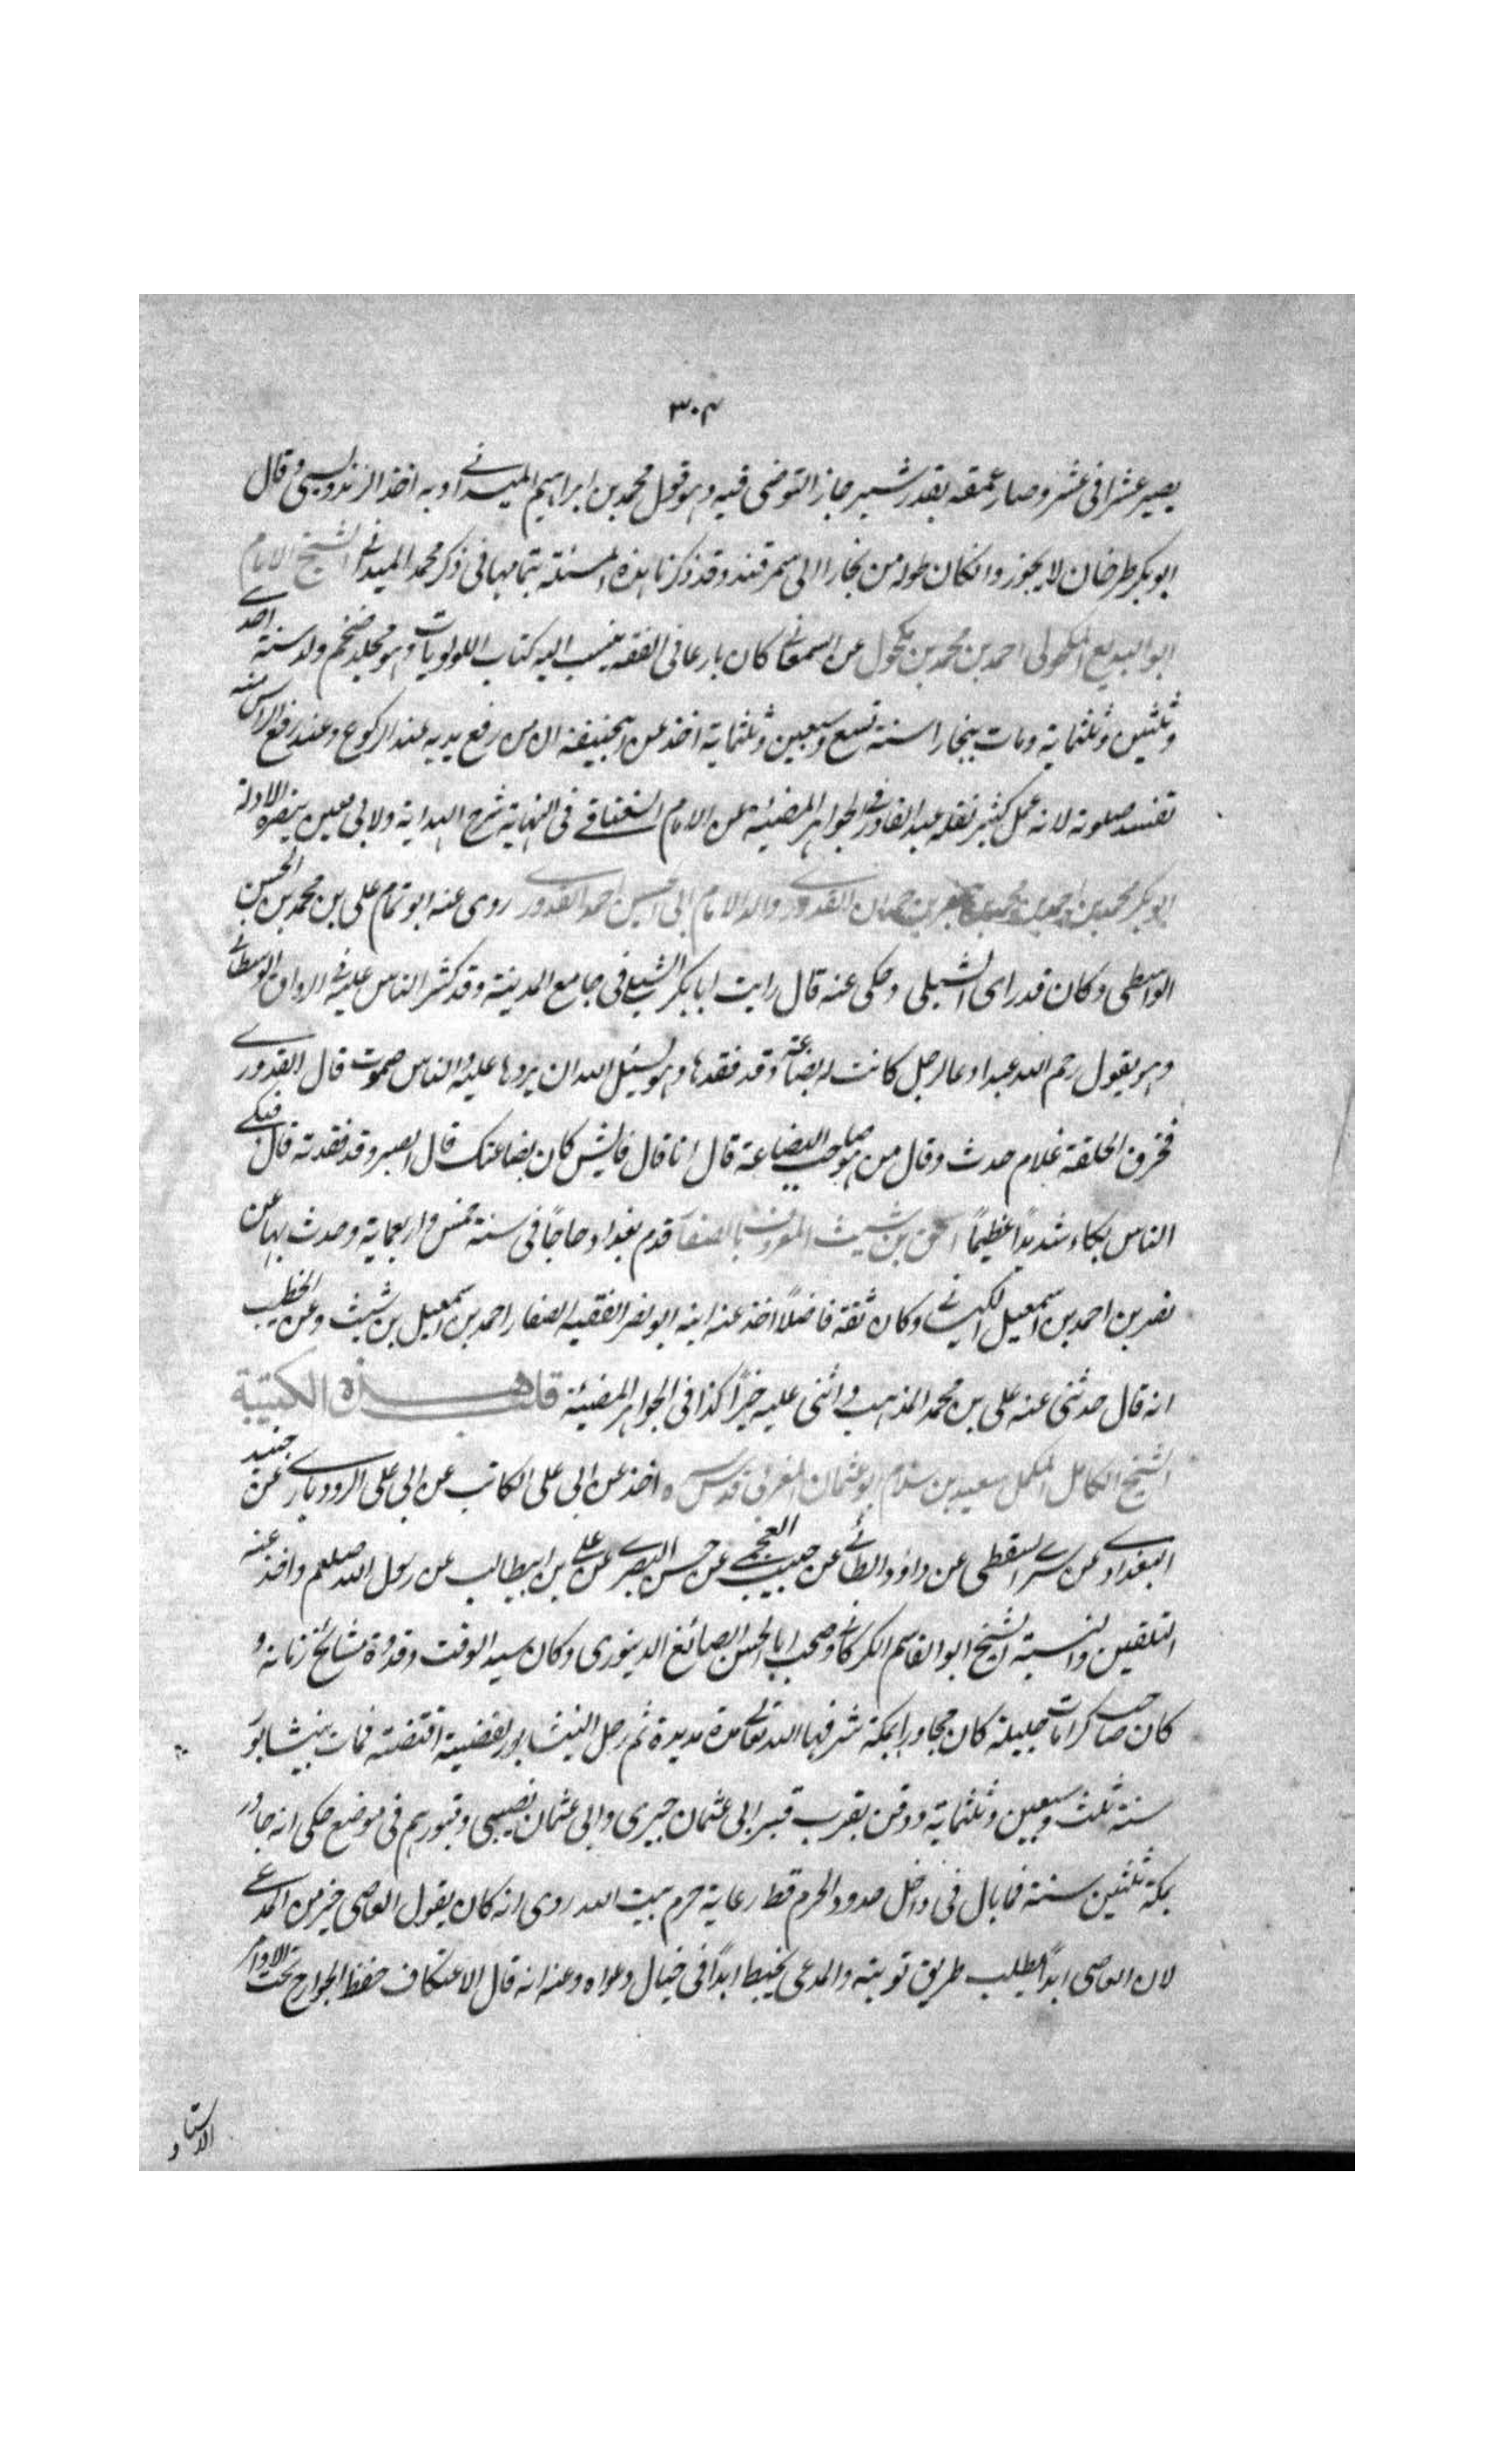 ٣٠٤
يصير عشرا فى عشر وصار عمقه بقدر شبر جاز التوضى فيه وهو قول محمد بن ابراهيم الميدانى وبه اخذ الزندويسى وقال
ابو بكر طرخان لا يجوز وانكان طوله من بخارا الى سمرقند وقد ذكرنا هذه المسئلة بتمامها فى ذكر محمد الميدانى الشيخ الامام
ابو البديع المكحولى احمد بن محمد بن مكحول عن السمعانى كان بارعا فى الفقه ينسب اليه كتاب اللولويات وهو مجلد ضخم ولد سنة احدى
وثلثين وثلثماية ومات ببخارا سنة تسع وسبعين وثلثماية اخذ عن ابيحنيفة ان من رفع يديه عند الركوع وعند رفع الراس منه
تفسد صلوته لانه عمل كثير نقله عبد القادر فى الجواهر المضيئة عن الامام السغناقى فى النهاية شرح الهداية ولابى معين تبصرة الادلة
ابو بكر محمد بن احمد بن محمد بن جعفر بن حمدان القدورى والد الامام ابى الحسين احمد القدورى روى عنه ابو تمام على بن محمد بن الحسن
الواسطى وكان قد راى الشبلى وحكى عنه قال رايت ابا بكر الشبلى فى جامع المدينة وقد كثر الناس عليه فى الرواق الوسطانى
وهو يقول رحم الله عبدا دعا لرجل كانت له بضاعة وقد فقدها وهو يسئل الله ان يردها عليه والناس صموت قال القدورى
فخرق الحلقة غلام حدث وقال من هو صاحب البضاعة قال انا قال فايش كان بضاعتك قال الصبر وقد فقدته قال فبكى
الناس بكاء شديدًا عظيمًا اسحق بن شيث المعروف بالصفار قدم بغداد حاجًا فى سنة خمس واربعماية وحدث بها عن
نصر بن احمد بن اسمعيل الكسانى وكان ثقة فاضلًا اخذ عنه ابنه ابو نصر الفقيه الصفار احمد بن اسمعيل بن شيث وعن الخطيب
انه قال حدثنى عنه على بن محمد المذهب واثنى عليه خيرًا كذا فى الجواهر المضيئة قلب هذه الكتيبة
الشيخ الكامل المكمل سعيد بن سلام ابو عثمان المغربى قدس سره اخذ عن ابى على الكاتب عن ابى على الرودبارى عن جنيد
البغدادى عن سرى السقطى عن داؤد الطائى عن حبيب العجمى عن حسن البصرى عن على بن ابيطالب عن رسول الله صلعم واخذ عنه
التلقين والنسبة الشيخ ابو القاسم الكركانى وصحب ابا الحسن الصائغ الدينورى وكان سيد الوقت وقدوة مشائخ زمانه و
كان صاحب كرامات جليلة كان مجاورا بمكة شرفها الله تعالى مدة مديدة ثم رحل النيشابور لقضية اقتضته فمات بنيشابور
سنة ثلث وسبعين وثلثماية ودفن بقرب قبر ابى عثمان حيرى وابى عثمان نصيبى وقبورهم فى موضع حكى انه جاور
بمكة ثلثين سنة فما بال فى داخل حدود الحرم قط رعاية حرم بيت الله روى انه كان يقول العاصى خير من المدعى
لان العاصى ابدًا يطلب طريق توبته والمدعى يخبط ابدًا فى خيال دعواه وعنه انه قال الاعتكاف حفظ الجوارح تحت الاوامر
الاستاد